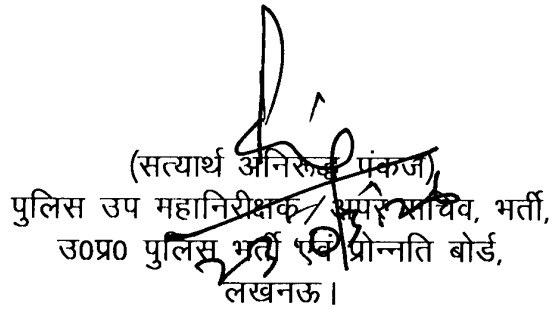 (सत्यार्थ अनिरूद्ध पंकज)
पुलिस उप महानिरीक्षक / अपर सचिव, भर्ती,
उ0प्र0 पुलिस भर्ती एवं प्रोन्नति बोर्ड,
लखनऊ।